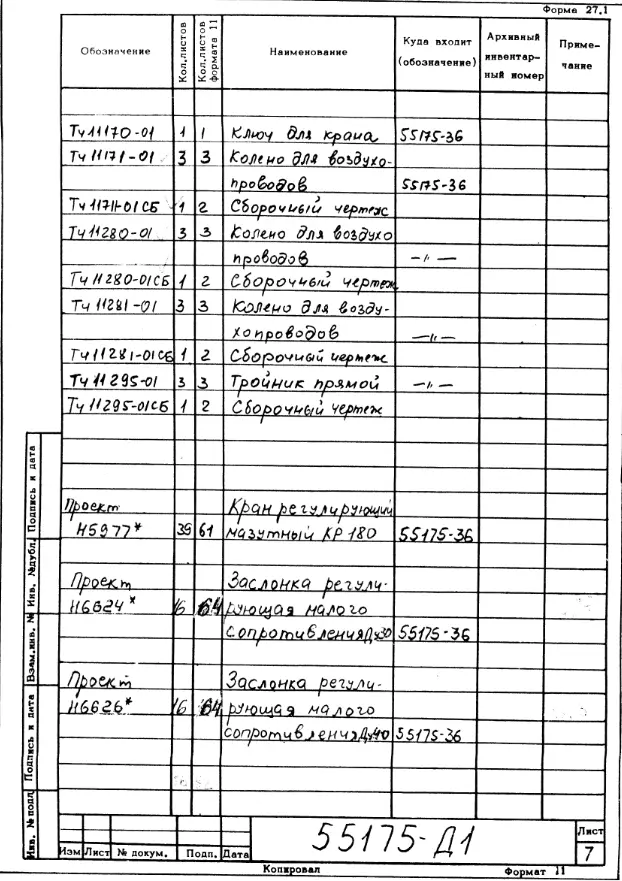 Форма 27.1
Обозначение Кол.листов Кол.листов формата 11 Наименование Куда входит (обозначение) Архивный инвентарный номер Примечание
Тч11170-01 1 1 Ключ для крана 55175-36
Тч11171-01 3 3 Колено для воздухо-
проводов 55175-36
Тч11171-01СБ 1 2 Сборочный чертеж
Тч11280-01 3 3 Колено для воздухо
проводов —〃—
Тч11280-01СБ 1 2 Сборочный чертеж
Тч11281-01 3 3 Колено для возду-
хопроводов —〃—
Тч11281-01СБ 1 2 Сборочный чертеж
Тч11295-01 3 3 Тройник прямой —〃—
Тч11295-01СБ 1 2 Сборочный чертеж
Проект Кран регулирующий
Н5977* 39 61 мазутный КР 180 55175-36
Проект Заслонка регули-
Н6624* 16 64 рующая малого
сопротивленияДу30 55175-36
Проект Заслонка регули-
Н6626* 16 64 рующая малого
сопротивленияДу40 55175-36
Подпись и дата
Инв. №дубл.
Взам.инв. №
Подпись и дата
Инв. №подл
55175-Д1 Лист
7
Изм Лист № докум. Подп. Дата
Копировал Формат 11